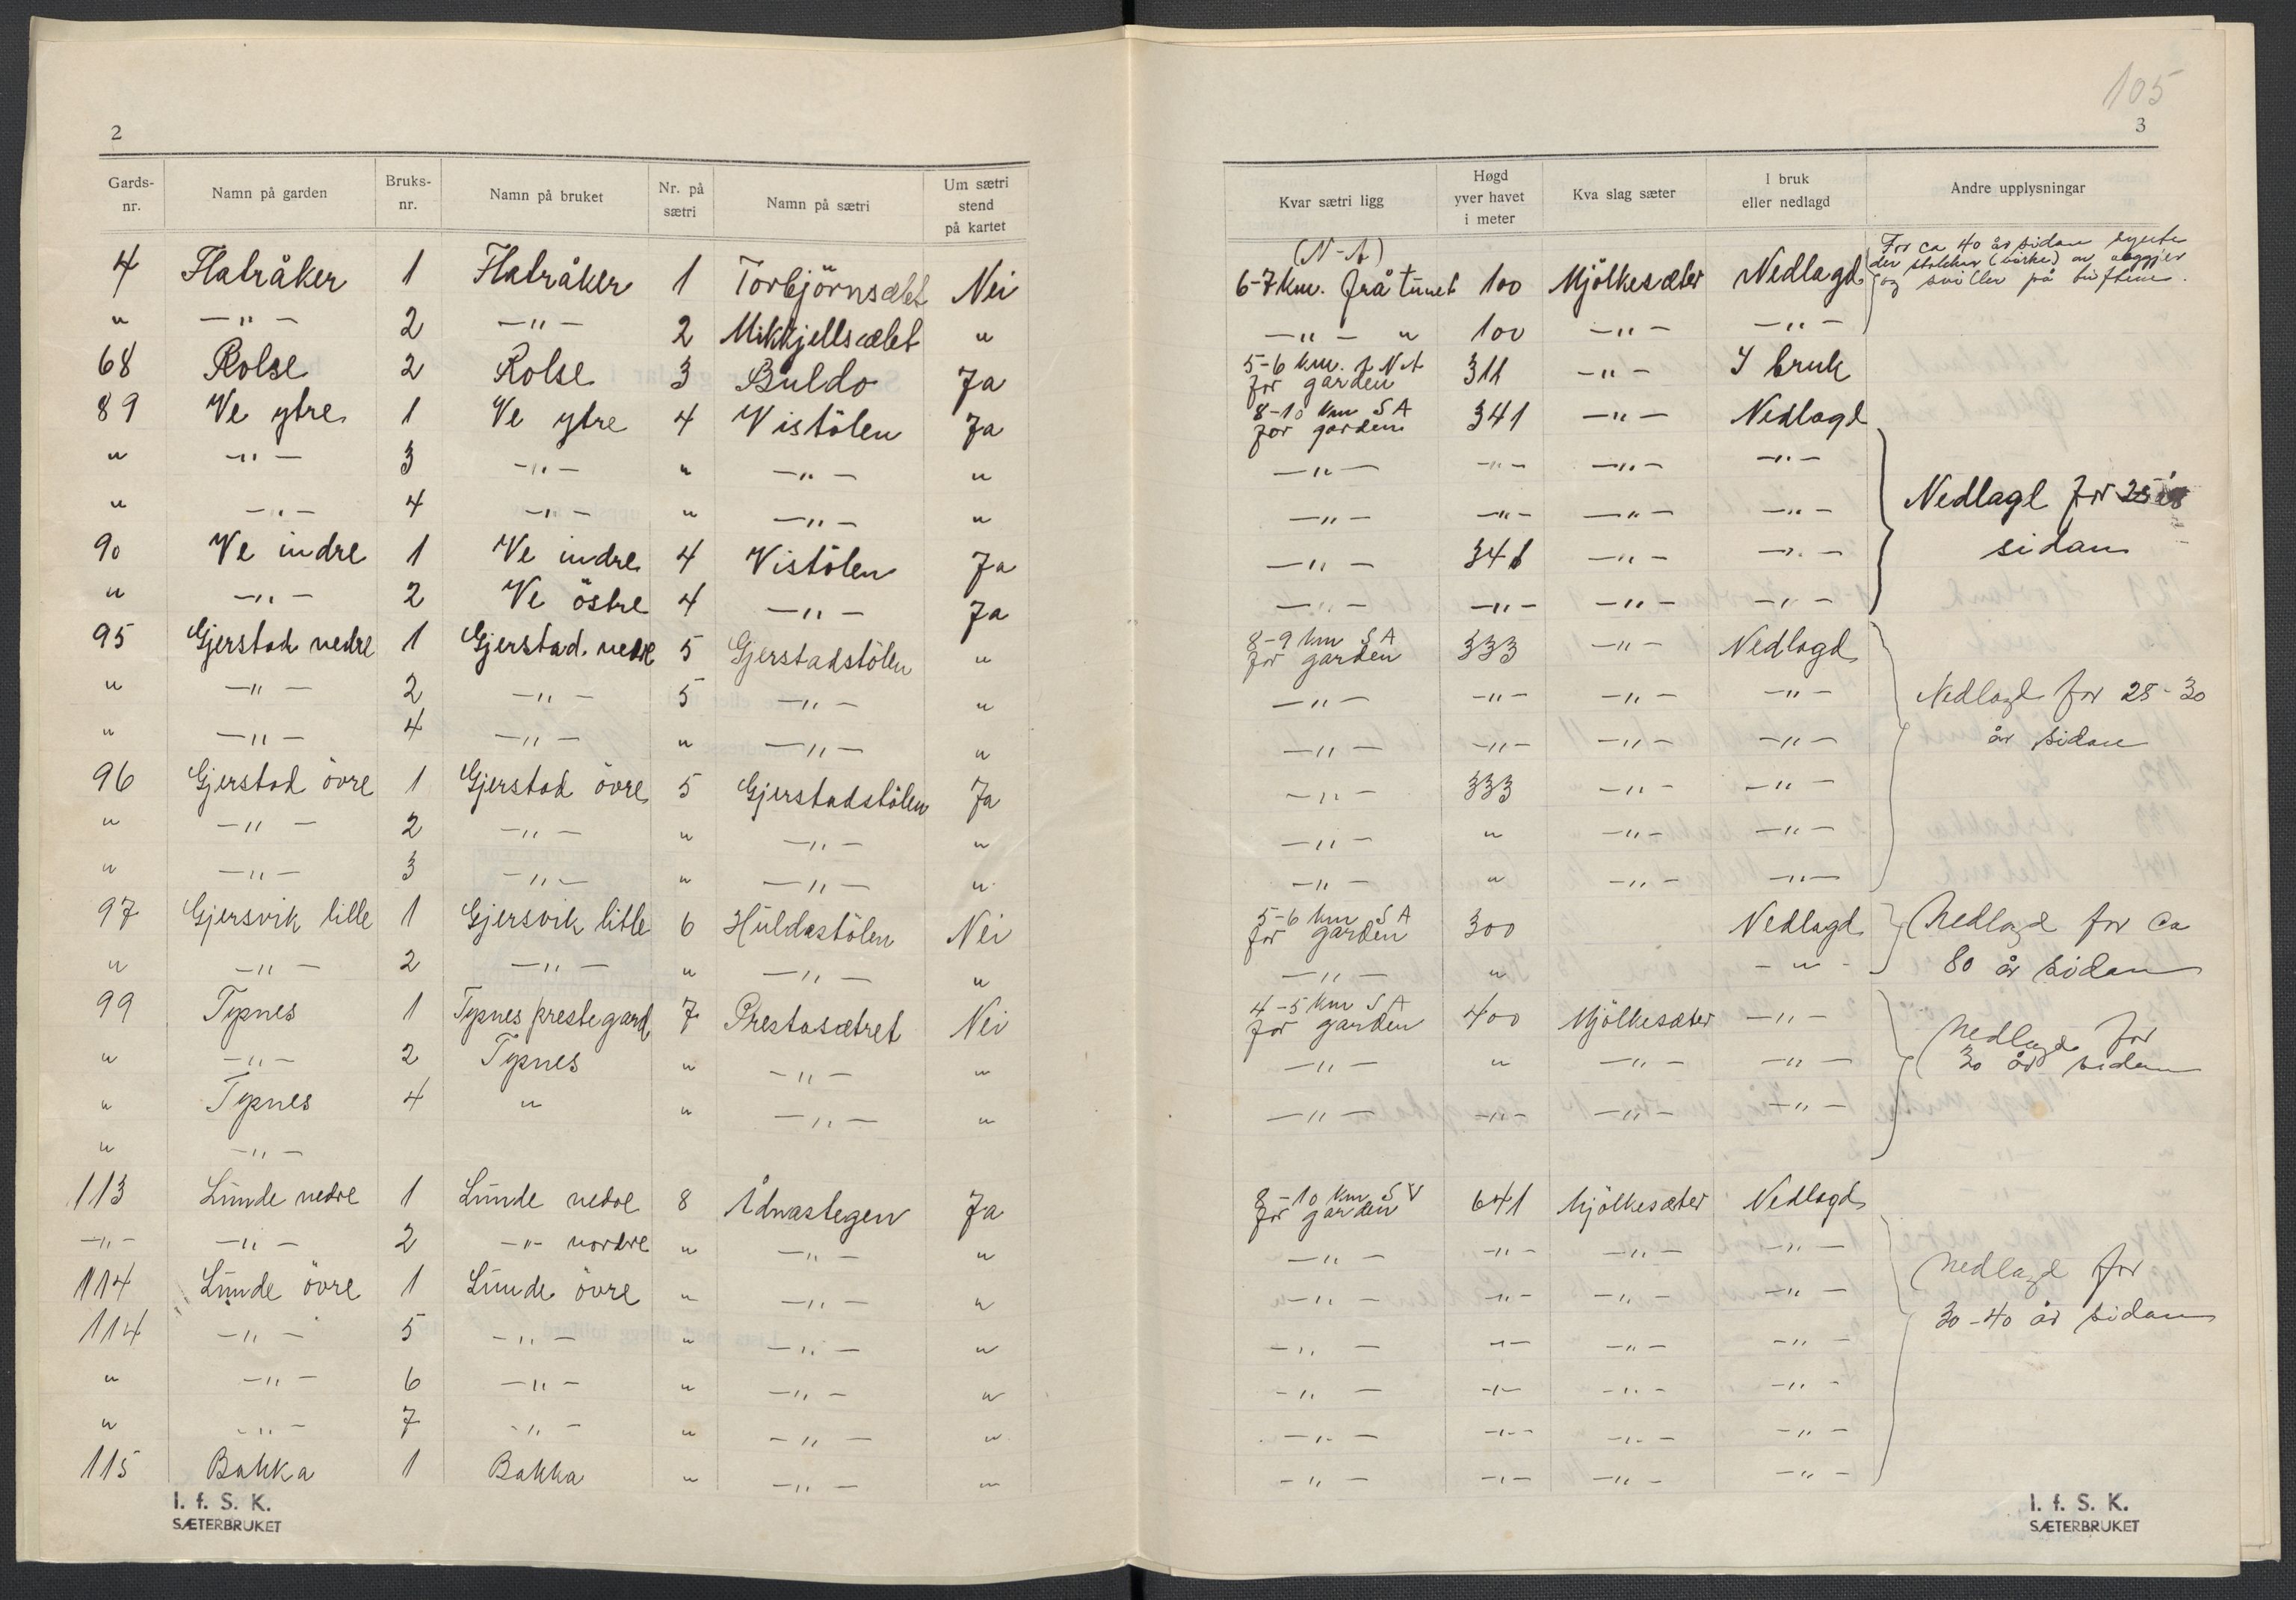 2
Gards-nr. Namn på garden Bruks-nr. Namn på bruket Nr. på sætri Namn på sætri Um sætri stend på kartet
4 Flatråker 1 Flatråker 1 Torbjörnsælet Nei
" —"— 2 —"— 2 Mikkjellsælet "
68 Rolse 2 Rolse 3 Buldo Ja
89 Ve ytre 1 Ve ytre 4 Vistölen Ja
" —"— 3 —"— " —"— "
" —"— 4 —"— " —"— "
90 Ve indre 1 Ve indre 4 Vistölen Ja
" —"— 2 Ve östre 4 —"— Ja
95 Gjerstad nedre 1 Gjerstad nedre 5 Gjerstadstölen "
" —"— 2 —"— 5 —"— "
" —"— 4 —"— " —"— "
96 Gjerstad övre 1 Gjerstad övre 5 Gjerstadstölen Ja
" —"— 2 —"— " —"— "
" —"— 3 —"— " —"— "
97 Gjersvik lille 1 Gjersvik lille 6 Huldastölen Nei
" —"— 2 —"— " —"— "
99 Tysnes 1 Tysnes prestegard 7 Prestasætret Nei
" —"— 2 Tysnes " —"— "
" Tysnes 4 " " —"— "
" —"—
113 Lunde nedre 1 Lunde nedre 8 Ådnastegen Ja
—"— —"— 2 —"— nordre " —"— "
114 Lunde övre 1 Lunde övre " —"— "
114 —"— 5 —"— " —"— "
" —"— 6 —"— " —"— "
" —"— 7 —"— " —"— "
115 Bakka 1 Bakka " —"— "
I. f. S. K.
SÆTERBRUKET
105
3
Kvar sætri ligg Høgd yver havet i meter Kva slag sæter I bruk eller nedlagd Andre upplysningar
(N-A)
6-7 km. frå tunet 100 Mjölkesæter Nedlagd For ca 40 år sidan
—"— " 100 —"— —"—
5-6 km. N A for garden 311 —"— I bruk
8-10 km S A for garden 341 —"— Nedlagd
—"— —"— —"— —"—
—"— —"— —"— —"— Nedlagt for 25 år
—"— 341 —"— —"— sidan
—"— —"— —"— —"—
8-9 km S A for garden 333 —"— Nedlagd
—"— —"— —"— —"— Nedlagd for 25-30
—"— —"— —"— —"— år sidan
—"— 333 —"— —"—
—"— " —"— —"—
—"— " —"— —"—
5-6 km S A for garden 300 Nedlagd Nedlagd for ca
—"— " —"— 80 år sidan
4-5 km S A for garden 400 Mjölkesæter —"— Nedlagd for
—"— " —"— —"— 30 år sidan
—"— —"— —"— —"—
8-10 km S V for garden 641 Mjölkesæter Nedlagd
—"— —"— —"— —"—
—"— —"— —"— —"— Nedlagd for
—"— —"— —"— —"— 30-40 år sidan
—"— —"— —"— —"—
—"— —"— —"— —"—
—"— —"— —"— —"—
I. f. S. K.
SÆTERBRUKET